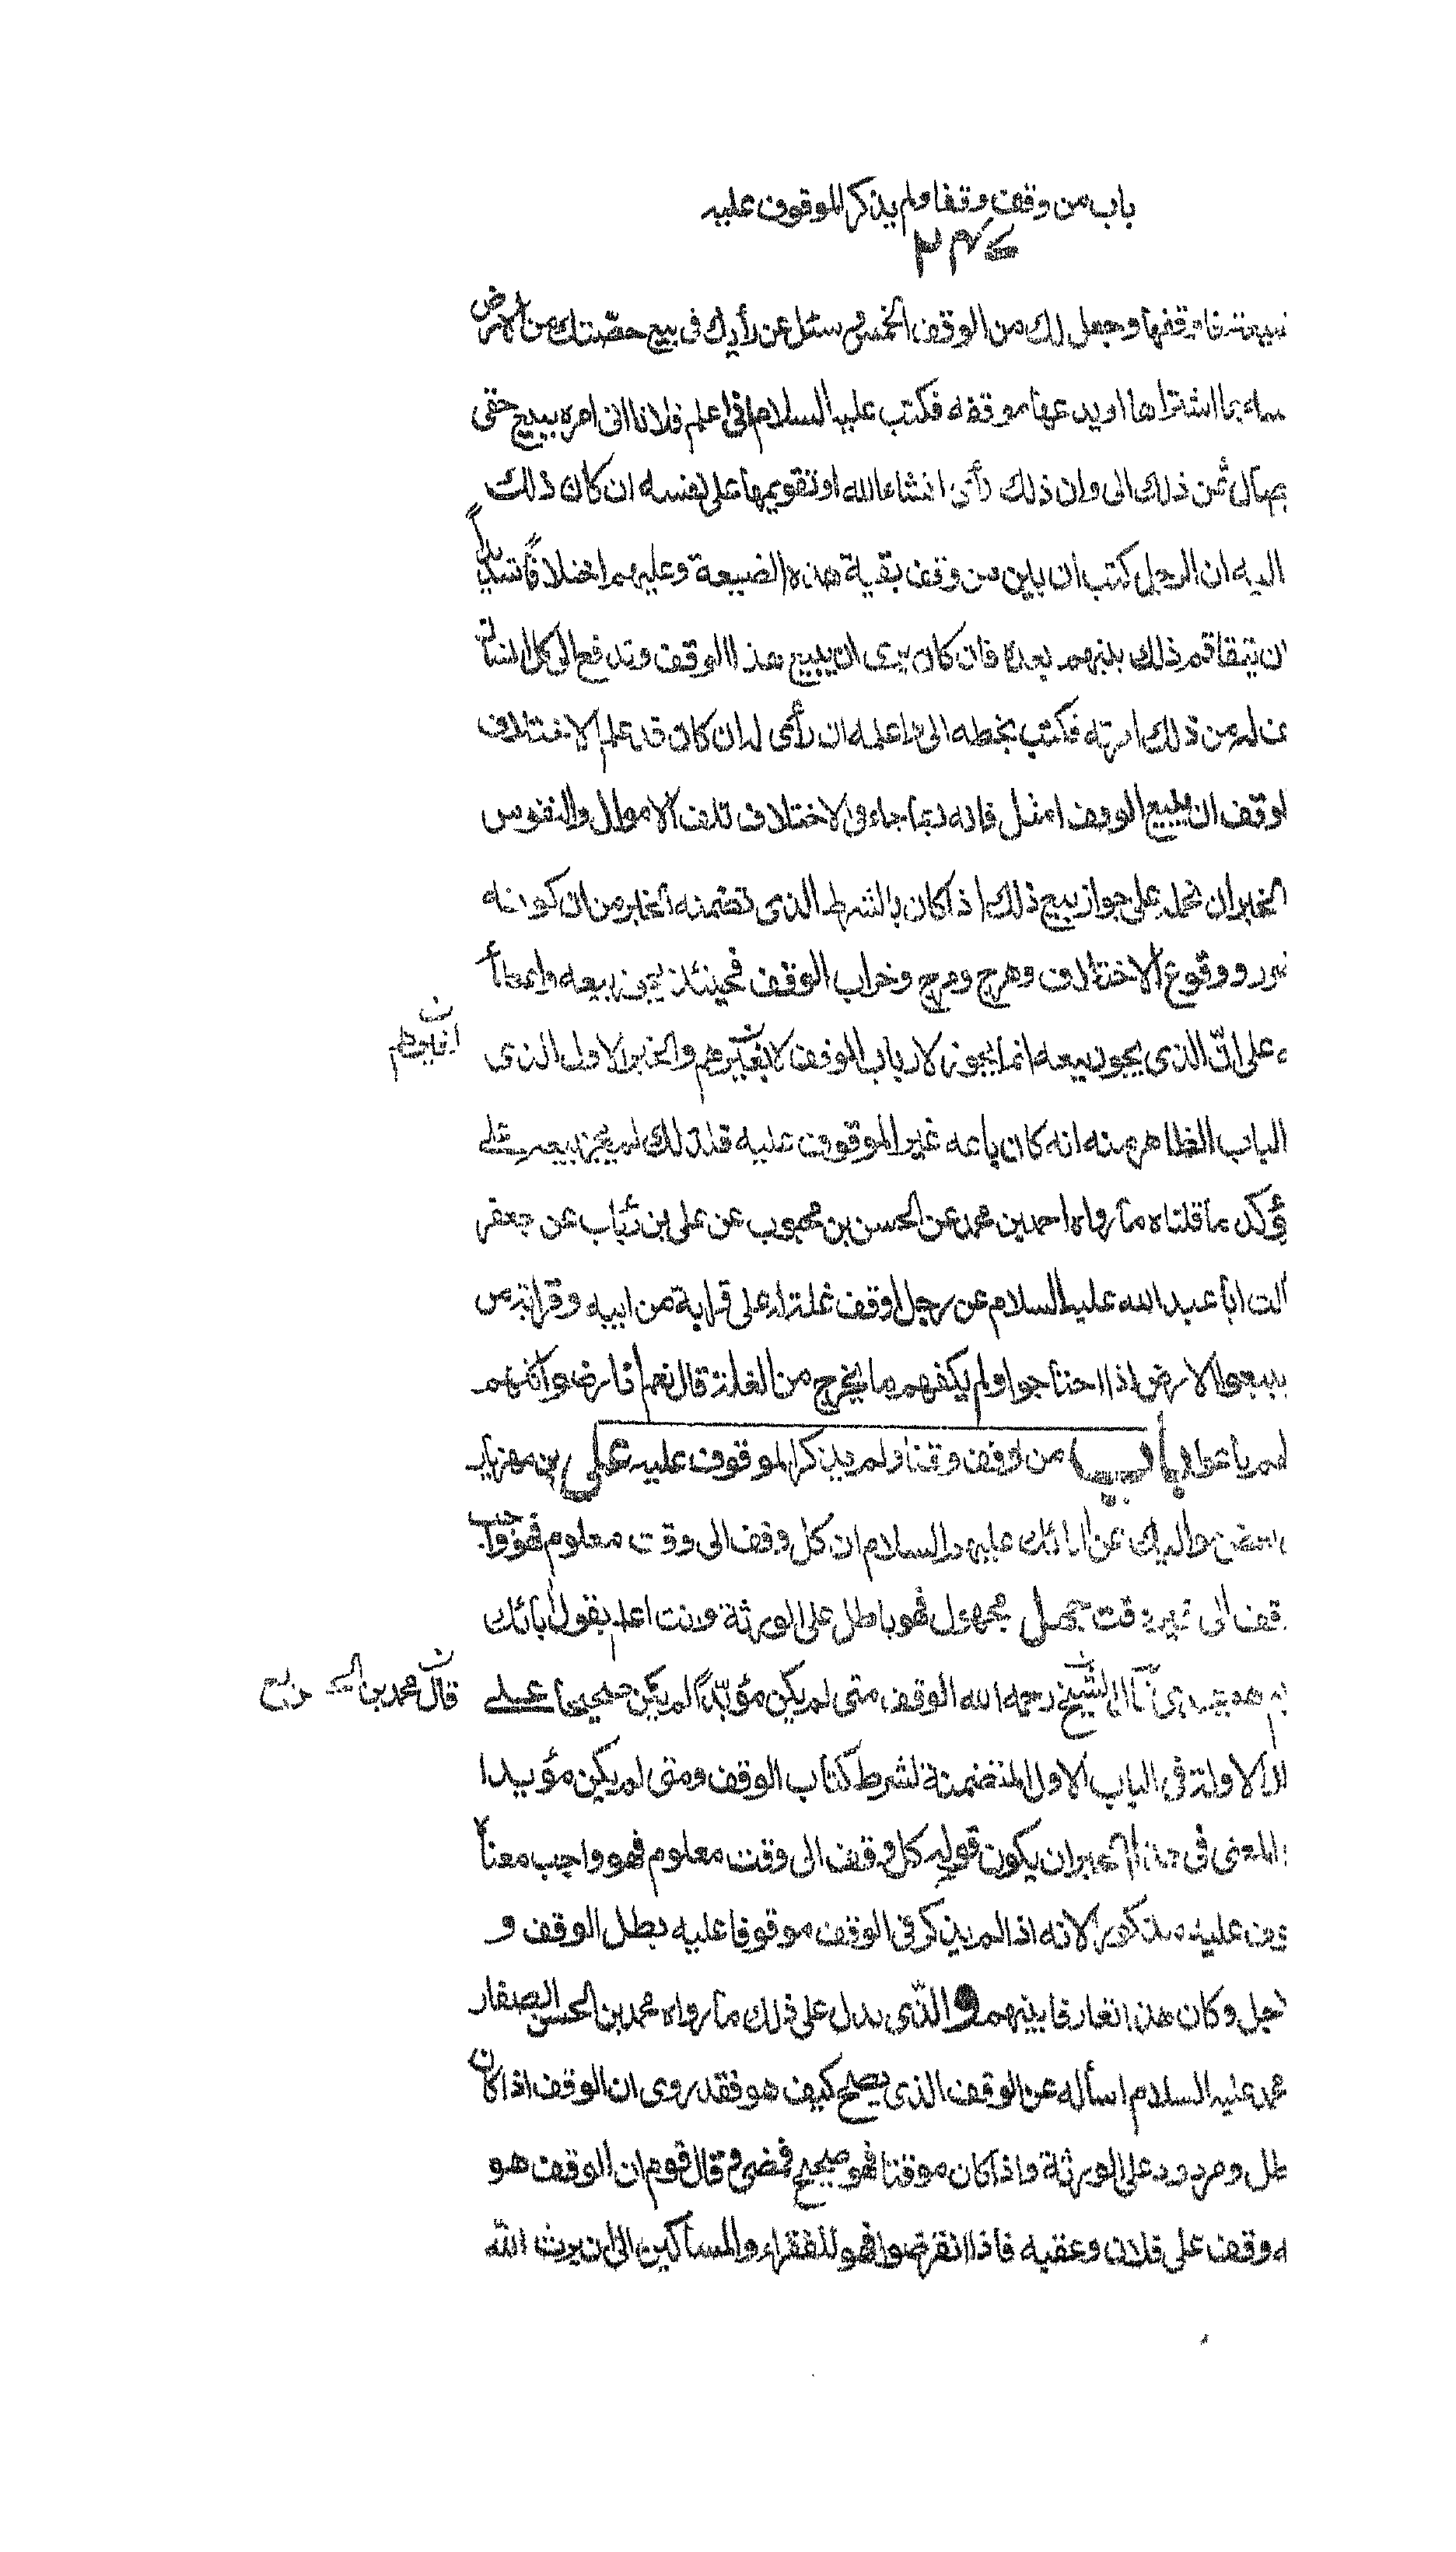 باب من وقف وقفا ولم يذكر الموقوف عليه
فاوقفها وجعل لك من الوقف الخمس و سئل عن رأيك فى بيع حصتك من الارض
بما اشتراها او يدعها موقفه فكتب عليه السلام الى اعلم فلانا انى امره ببيع حقى
ثمن ذلك الى وان ذلك رأى انشاء الله او تقويمها على نفسه ان كان ذلك
اليه ان الرجل كتب ان بين من وقف بقية هذه الضيعة وعليهم اختلافا شديداً
ان يتفاقم ذلك بينهم بعده فان كان يرى ان يبيع هذا الوقف وتدفع الى كل انسان
من ذلك امرته فكتب بخطه الى واعلمه ان رأى له ان كان قد علم الاختلاف
لوقف ان يبيع الوقف امثل فانه ربما جاء فى الاختلاف تلف الاموال والنفوس
الخبر ان نحمله على جواز بيع ذلك اذا كان بالشرط الذى تضمنه الخبر من ان كونه
ضرر ووقوع الاختلاف وهرج ومرج وخراب الوقف فحينئذ يجوز بيعه واعطأ
ه على انّ الذى يجوز بيعه انما يجوز لارباب الوقف لا بغيرهم والخبر الاول الذى
الباب الظاهر منه انه كان باعه غير الموقوف عليه فلذلك لم يجز بيعه على
يؤكد ما قلناه مآ رواه احمد بن محمد عن الحسن بن محبوب عن على بن رئاب عن جعفر
الت ابا عبد الله عليه السلام عن رجل اوقف غلة له على قرابة من ابيه وقرابة من
يبيعوا الارض اذا احتاجوا ولم يكفهم ما يخرج من الغلة قال نعم اذا رضوا كلهم
لهم باعوا باب من اوقف وقفا ولم يذكر الموقوف عليه على بن مهزيار
بعض مواليك عن ابائك عليهم السلام ان كل وقف الى وقت معلوم فهو واجب
قف الى غير وقت جهل مجهول فهو باطل على الورثة وانت اعلم بقول ابائك
هو عندى قال الشيخ رحمه الله الوقف متى لم يكن مؤبّداً لم يكن صحيحا على
قال محمد بن الحسن
الاولة فى الباب الاول المتضمنة لشرط كتاب الوقف ومتى لم يكن مؤبدا
المعنى فى هذا الخبر ان يكون قوله كل وقف الى وقت معلوم فهو واجب معناه
وف عليه مذكور لانه اذا لم يذكر فى الوقف موقوفا عليه بطل الوقف و
لاجل وكان هذا تعارفا بينهم والّذى يدل على ذلك مآ رواه محمد بن الحسن الصفار
محمد عليه السلام اسأله عن الوقف الذى يصلح كيف هو فقد روى ان الوقف اذا كان
طل ومردود على الورثة واذا كان موقتا فهو صحيح فمضى وقال قوم ان الوقف هو
ه وقف على فلان وعقبه فاذا انقرضوا فهو للفقراء والمساكين الى ان يرث الله